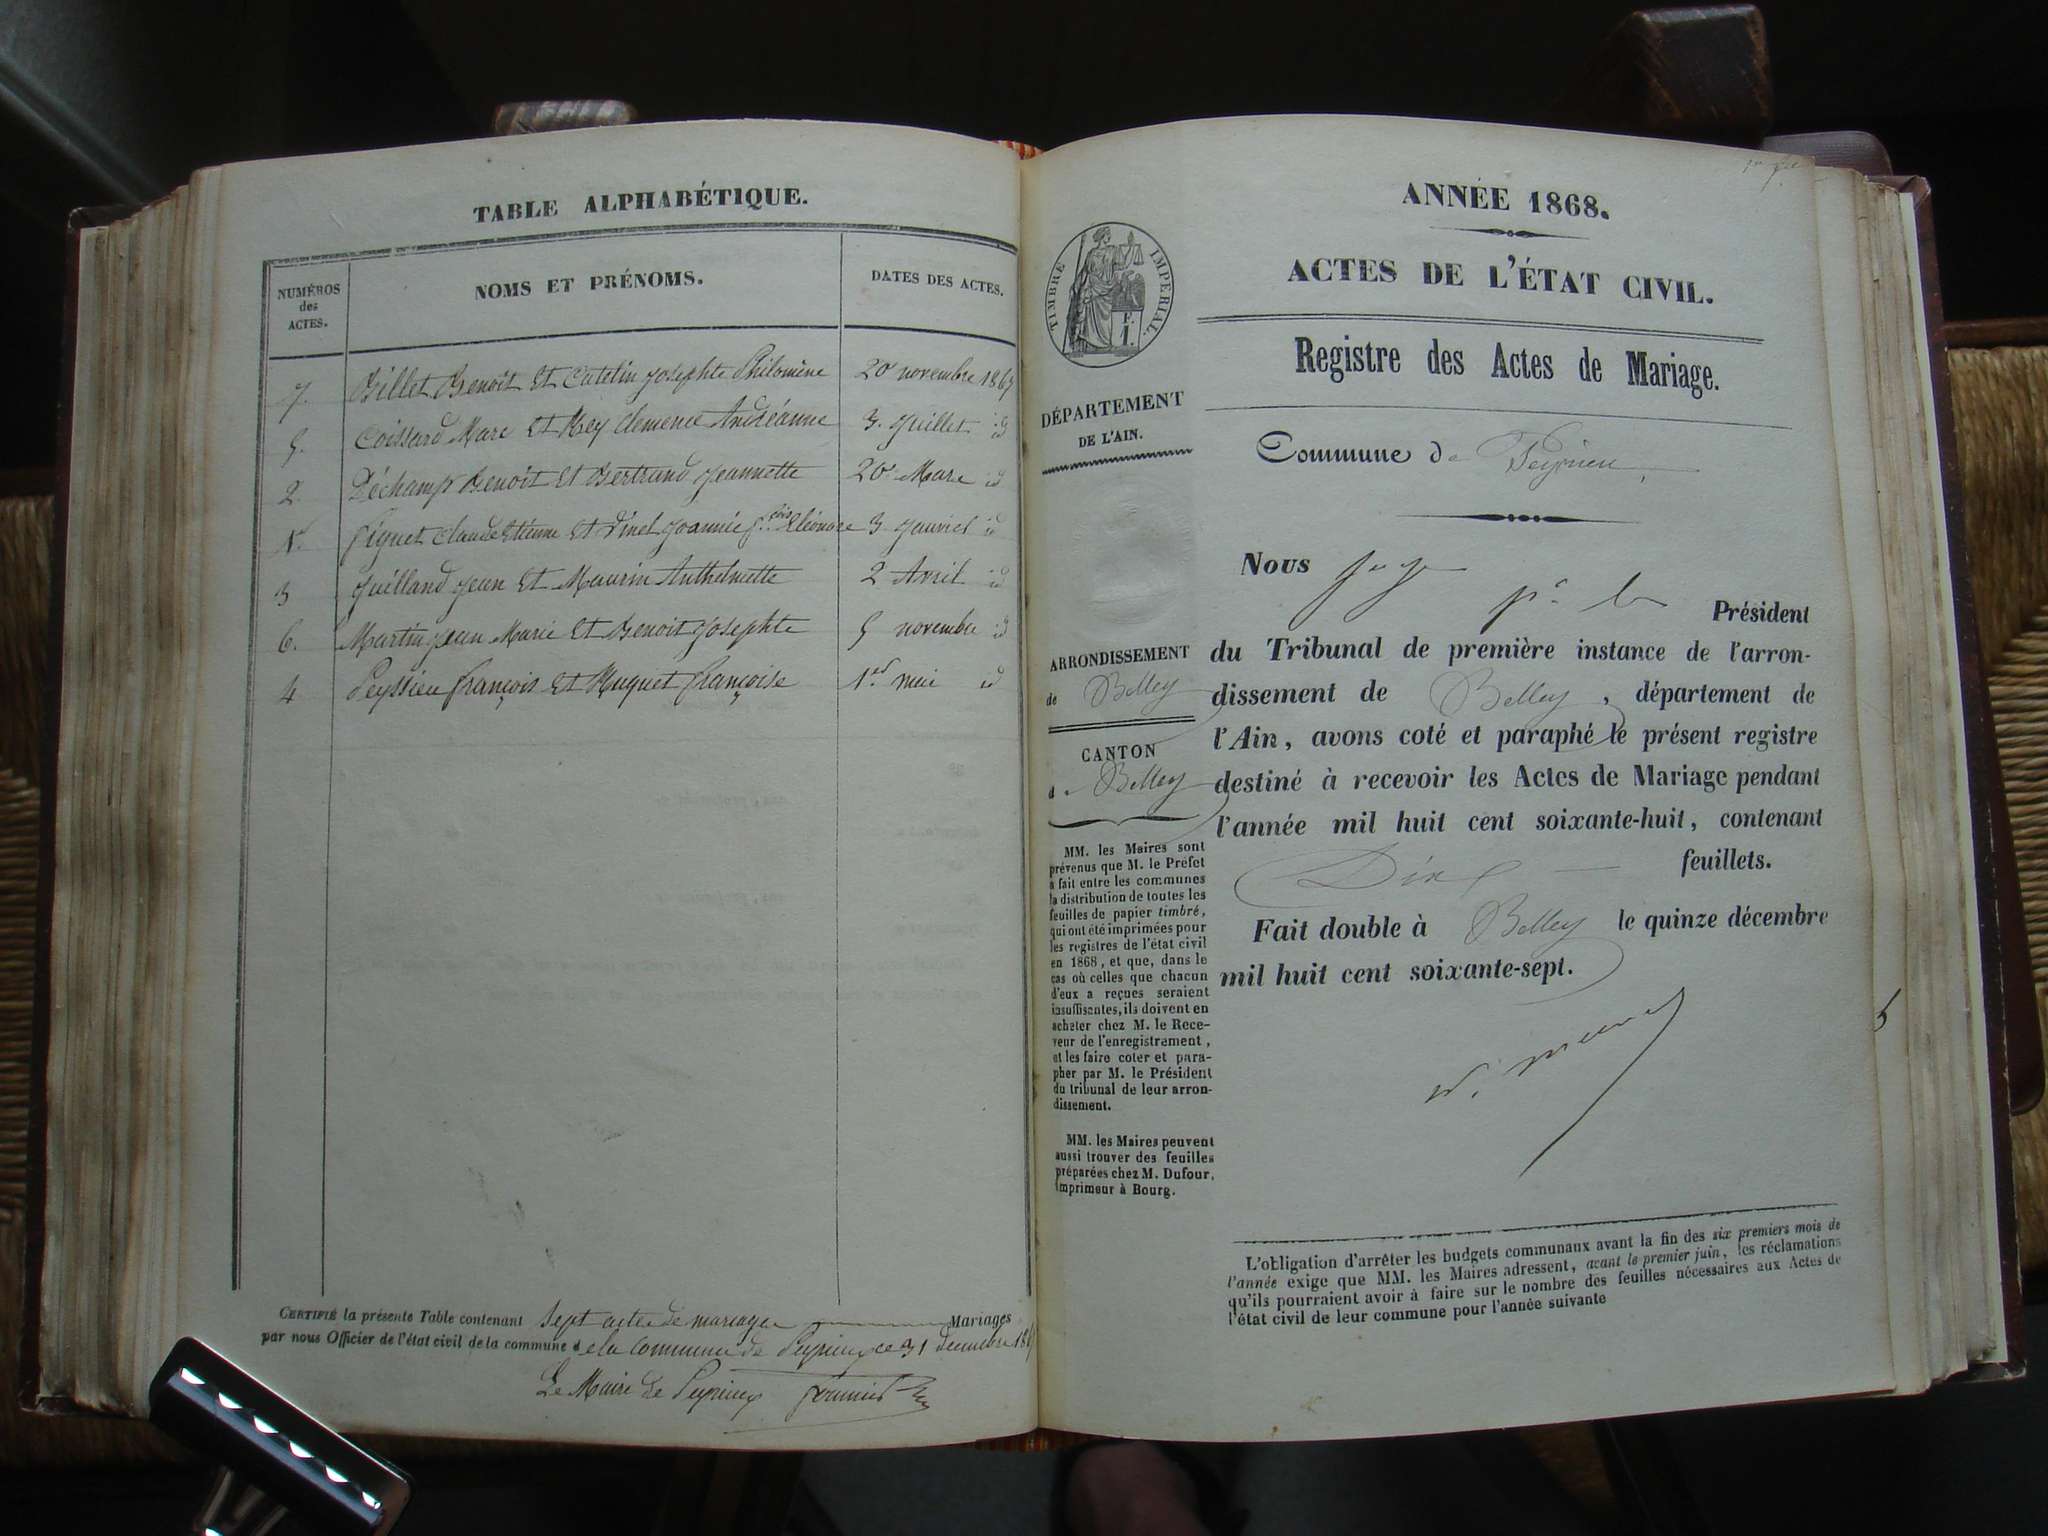 TABLE ALPHABÉTIQUE.
NUMÉROS des ACTES.
NOMS ET PRÉNOMS.
DATES DES ACTES.
7. Billet Benoit et Catelin Josephte Philomène 20 novembre 1867
5. Coissard Marc et Rey Clemence Andréanne 3. Juillet id
2. Déchamp Benoit et Bertrand Jeannette 20 Mars id
1. Piguet Claude Etienne et Dinet Joannie Eléonore 3 Janvier id
3 Juilland Jean et Maurin Anthelmette 2 Avril id
6. Martin Jean Marie et Benoit Josephte 5 novembre id
4 Peyssieu françois et Huguet françoise 1er mai id
CERTIFIÉ la présente Table contenant sept actes de mariage Mariages
par nous Officier de l'état civil de la commune de la commune de Peyrieu ce 31 decembre 1867
Le Maire de Peyrieu
ANNÉE 1868.
ACTES DE L'ÉTAT CIVIL.
Registre des Actes de Mariage.
Commune de Peyrieu
TIMBRE IMPÉRIAL.
F. 1.
DÉPARTEMENT
DE L'AIN.
ARRONDISSEMENT
de Belley
CANTON
de Belley
MM. les Maires sont
prévenus que M. le Préfet
a fait entre les communes
la distribution de toutes les
feuilles de papier timbré,
qui ont été imprimées pour
les registres de l'état civil
en 1868, et que, dans le
cas où celles que chacun
d'eux a reçues seraient
insuffisantes, ils doivent en
acheter chez M. le Rece-
veur de l'enregistrement,
et les faire coter et para-
pher par M. le Président
du tribunal de leur arron-
dissement.
MM. les Maires peuvent
aussi trouver des feuilles
préparées chez M. Dufour,
imprimeur à Bourg.
Nous Juge
pr le Président
du Tribunal de première instance de l'arron-
dissement de Belley, département de
l'Ain, avons coté et paraphé le présent registre
destiné à recevoir les Actes de Mariage pendant
l'année mil huit cent soixante-huit, contenant
Dix feuillets.
Fait double à Belley le quinze décembre
mil huit cent soixante-sept.
L'obligation d'arrêter les budgets communaux avant la fin des six premiers mois de
l'année exige que MM. les Maires adressent, avant le premier juin, les réclamations
qu'ils pourraient avoir à faire sur le nombre des feuilles nécessaires aux Actes de
l'état civil de leur commune pour l'année suivante